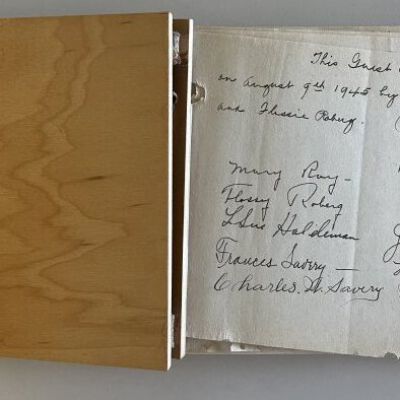 This Guest
on August 9th 1945 by
and Flossie Roberg.
Mary Ray -
Flossy Roberg
Haldeman
Frances Savery -
Charles. W. Savery